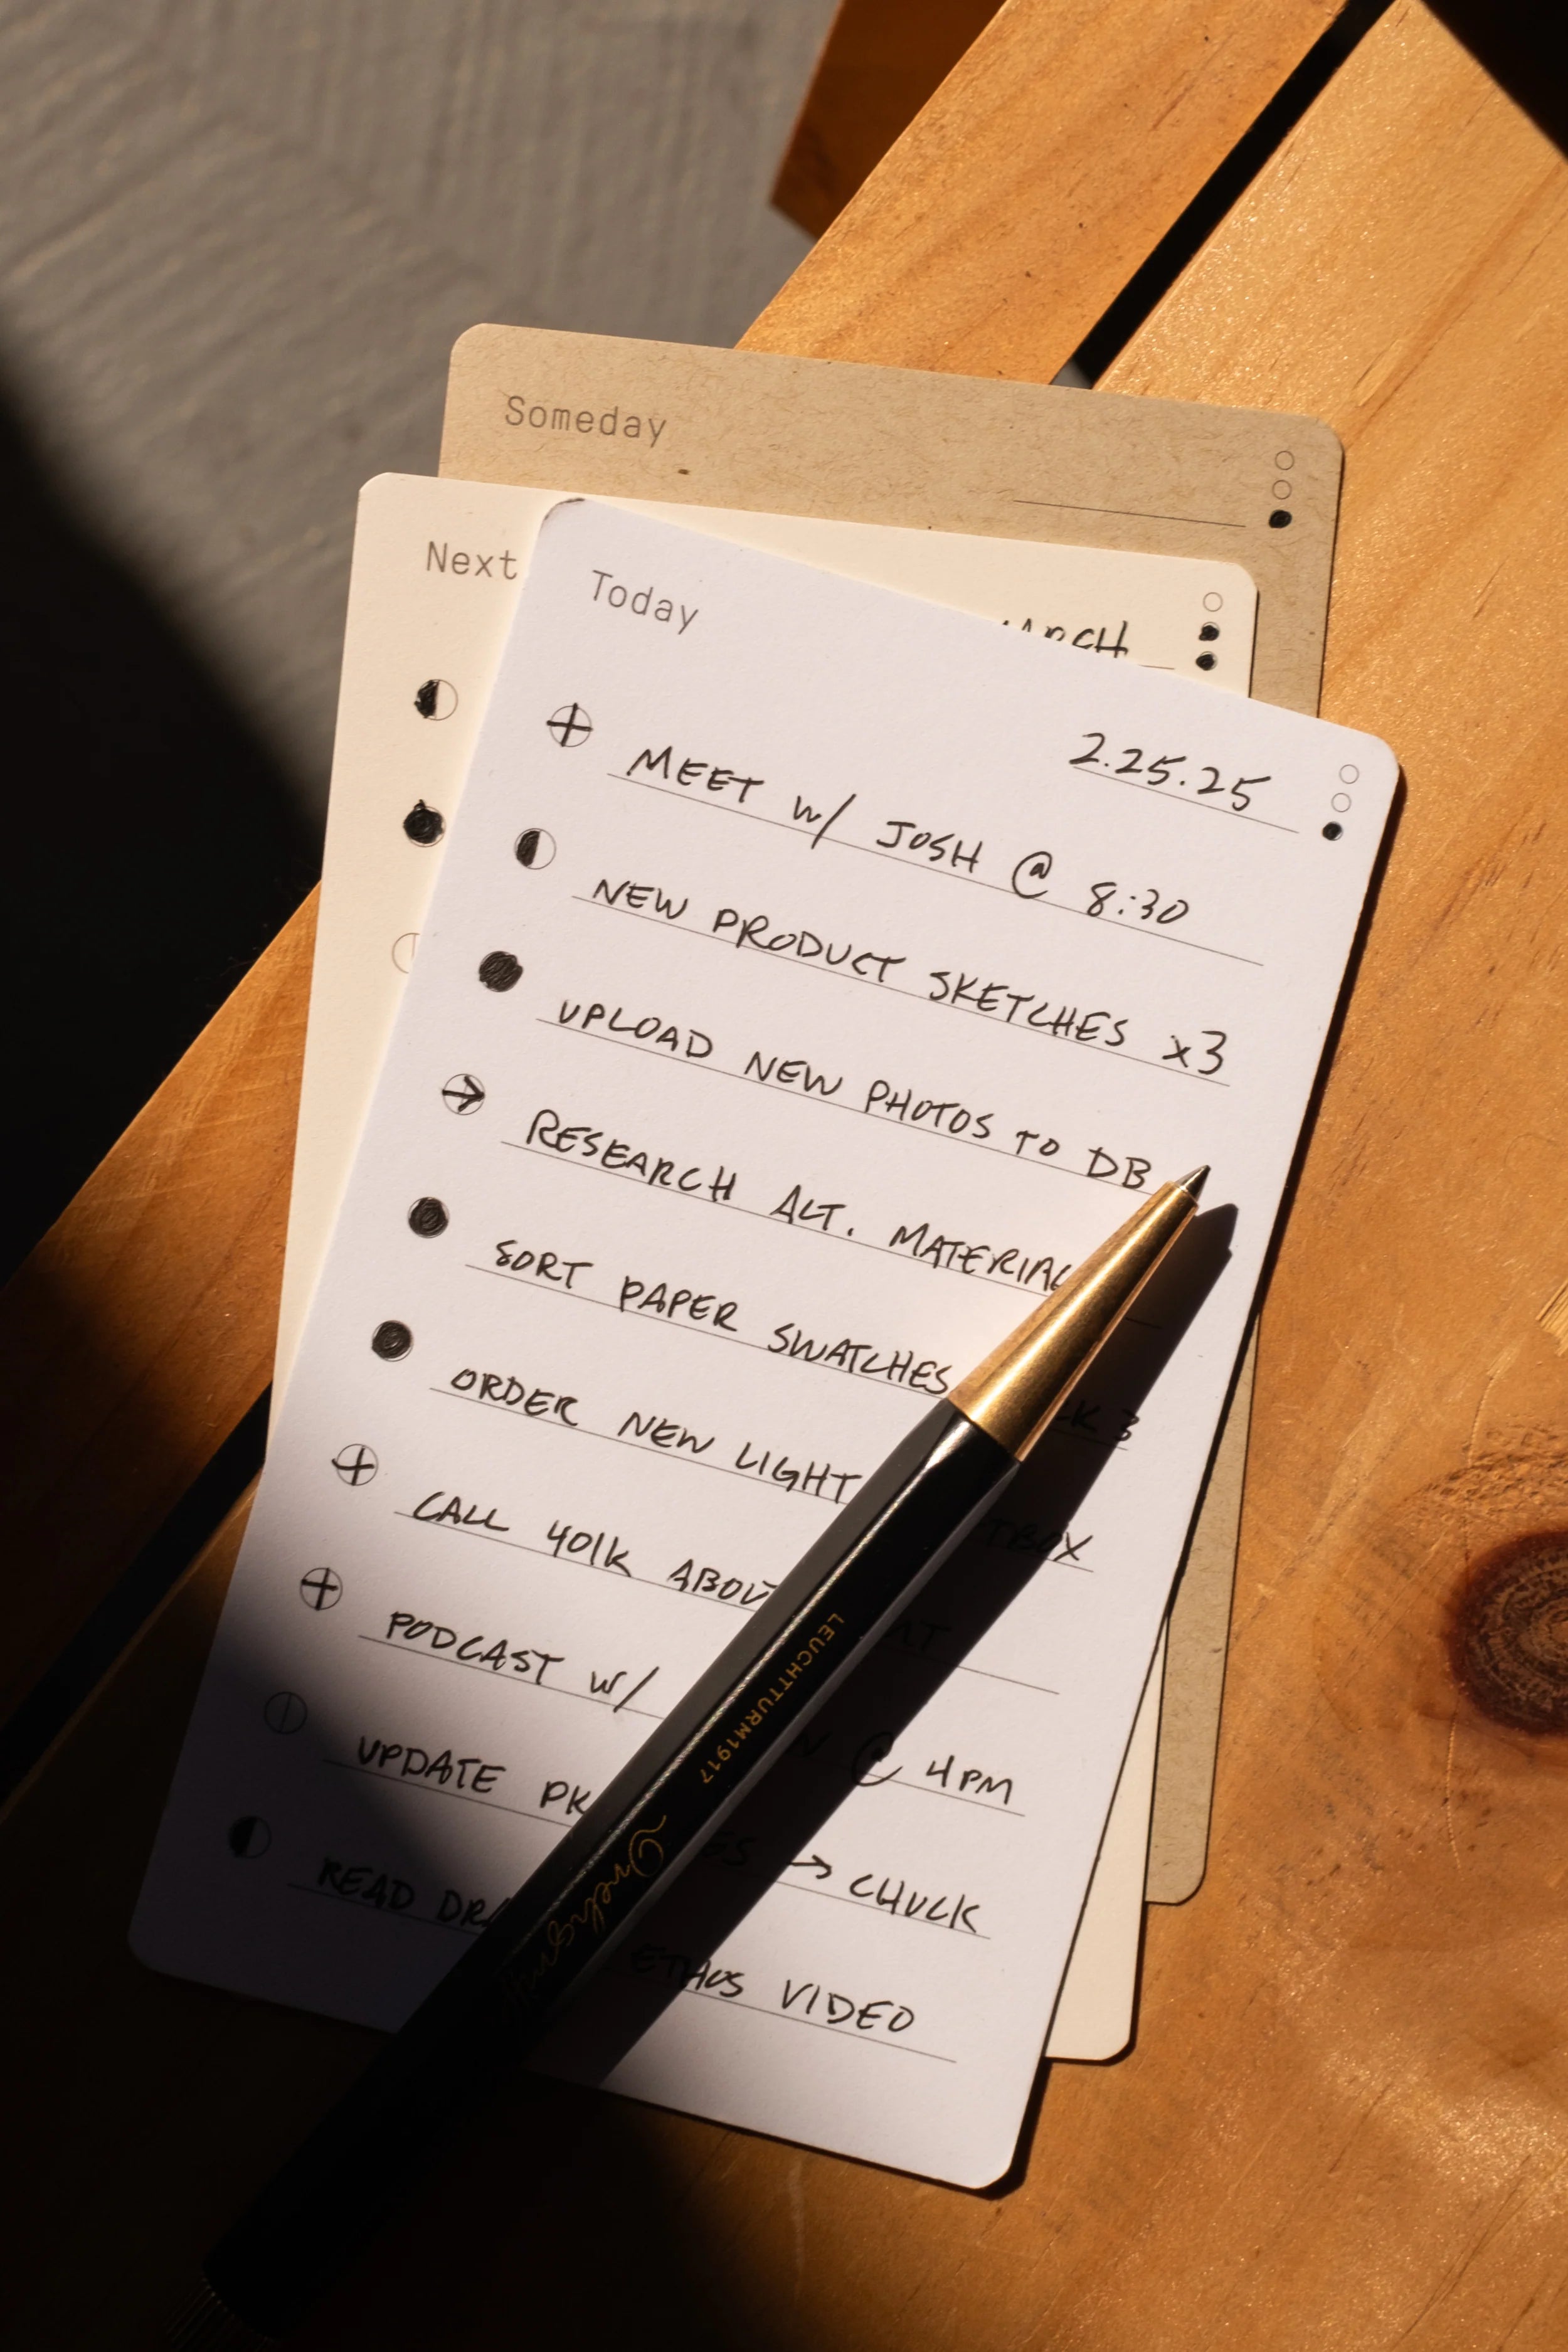 Someday
Next
Today
2.25.25
MEET w/ JOSH @ 8:30
NEW PRODUCT SKETCHES x3
UPLOAD NEW PHOTOS TO DB
RESEARCH ALT. MATERIAL
SORT PAPER SWATCHES
ORDER NEW LIGHT
CALL 401K ABOU
PODCAST w/ @ 4PM
UPDATE → CHUCK
READ ETHOS VIDEO
LEUCHTTURM1917